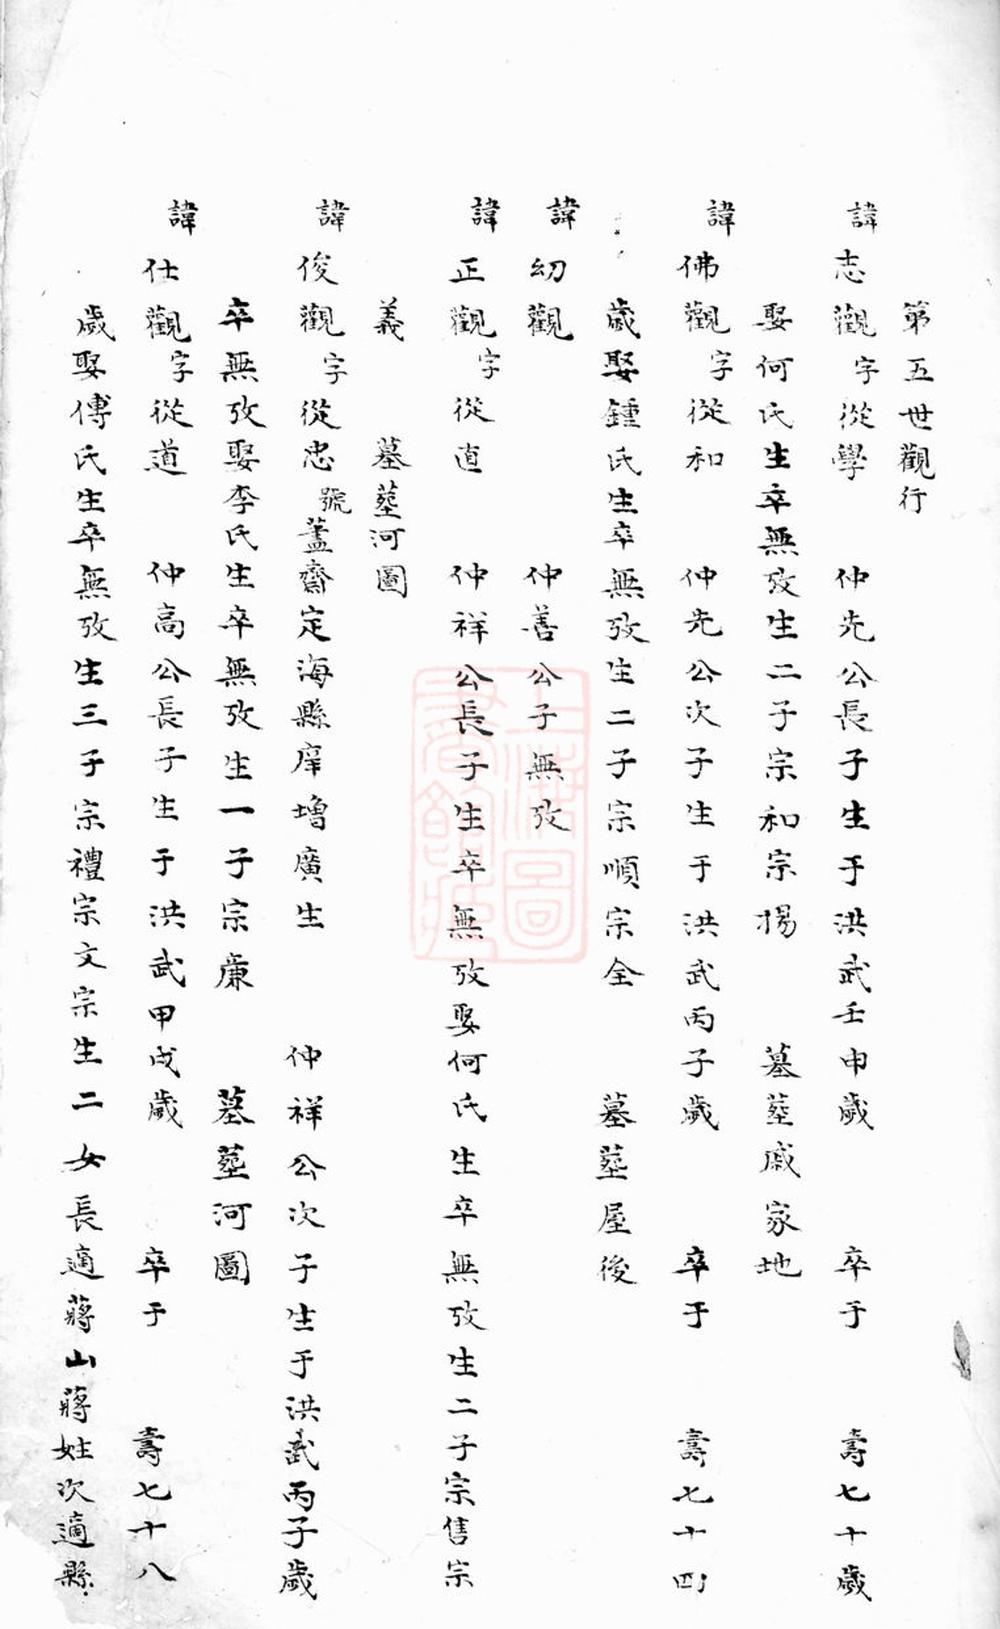 第五世觀行
諱志觀字從學 仲先公長子生于洪武壬申歲 卒于 壽七十歲
娶何氏生卒無攷生二子宗和宗揚 墓塟戚家地
諱佛觀字從和 仲先公次子生于洪武丙子歲 卒于 壽七十四
歲娶鍾氏生卒無攷生二子宗順宗全 墓塟屋後
諱幼觀 仲善公子無攷
諱正觀字從直 仲祥公長子生卒無攷娶何氏生卒無攷生二子宗售宗
義 墓塟河圖
諱俊觀字從忠號藎齋定海縣庠增廣生 仲祥公次子生于洪武丙子歲
卒無攷娶李氏生卒無攷生一子宗廉 墓塟河圖
諱仕觀字從道 仲高公長子生于洪武甲戌歲 卒于 壽七十八
歲娶傅氏生卒無攷生三子宗禮宗文宗生二女長適蔣山蔣姓次適縣
上海圖
書館藏